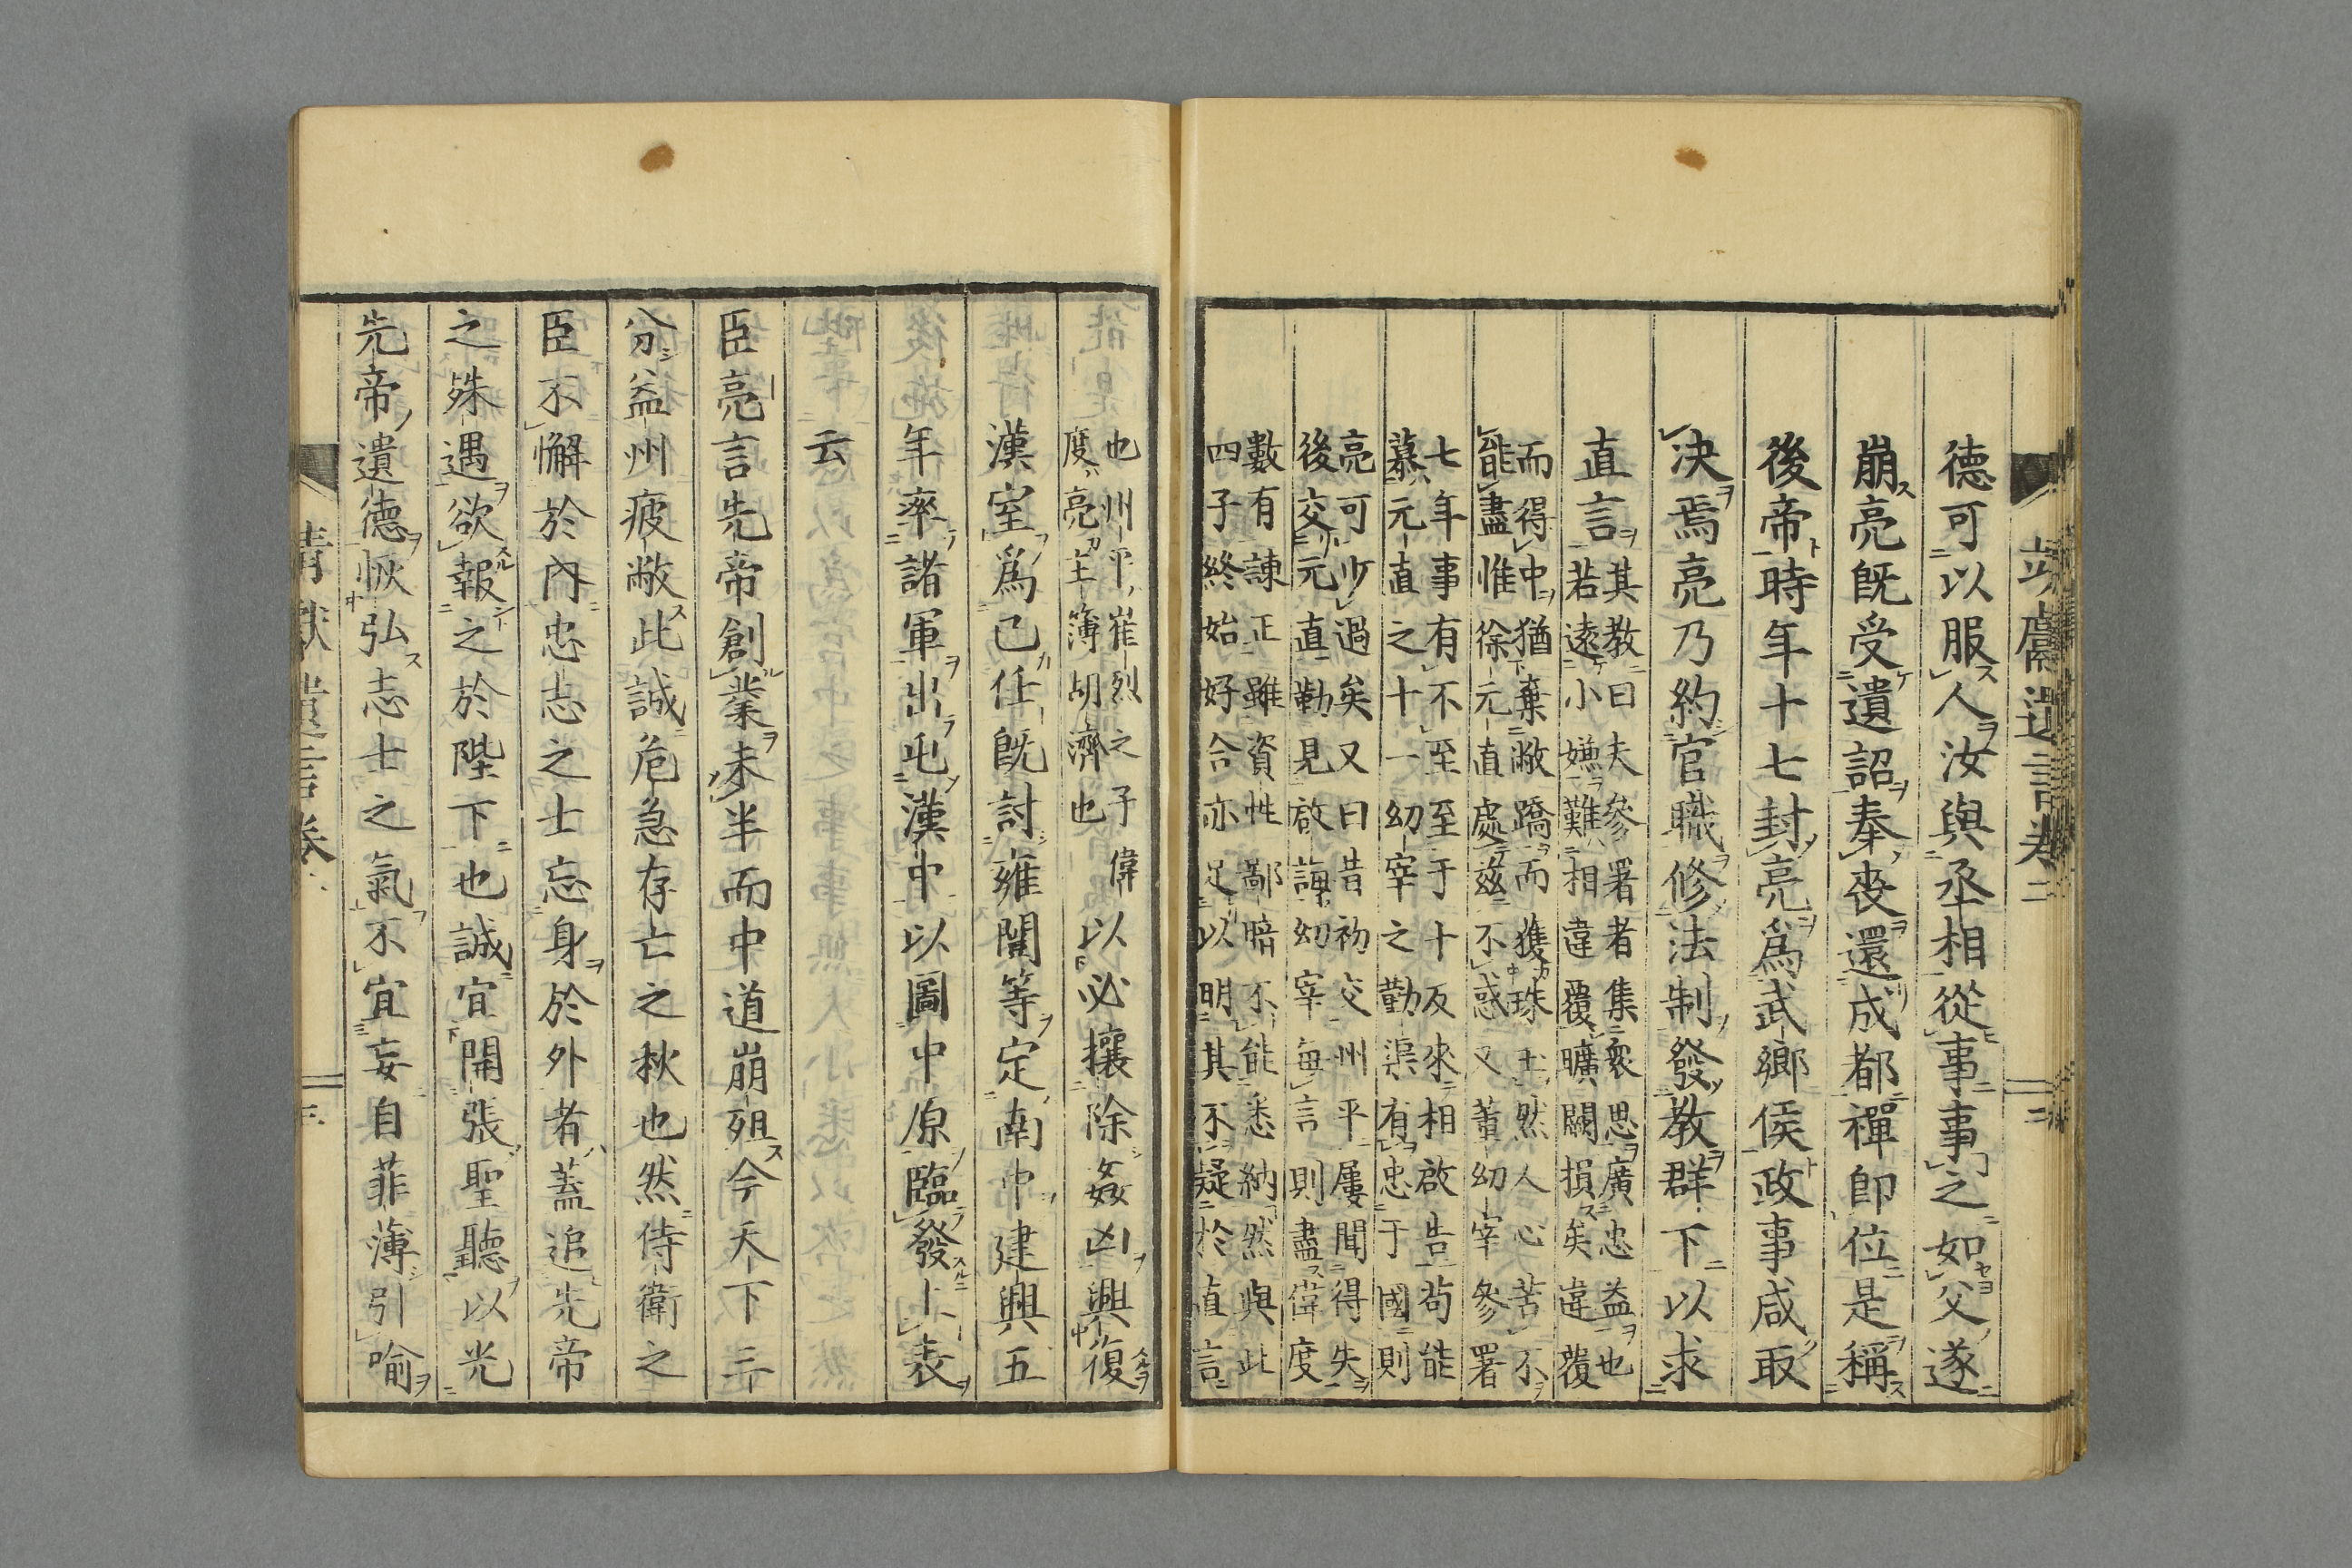 靖獻遺言卷二 二
德可以服人汝與丞相從事事之如父遂
崩亮既受遺詔奉喪還成都禪卽位是稱
後帝時年十七封亮爲武鄉侯政事咸取
決焉亮乃約官職修法制發教群下以求
直言
其教曰夫參署者集衆思廣忠益也
若遠小嫌難相違覆曠闕損矣違覆
而得中猶棄敝蹻而獲珠玉然人心苦不
能盡惟徐元直處茲不惑又董幼宰參署
七年事有不至至于十反來相啟告苟能
慕元直之十一幼宰之勤渠有忠于國則
亮可少過矣又曰昔初交州平屢聞得失
後交元直勤見啟誨幼宰每言則盡偉度
數有諫正雖資性鄙暗不能悉納然與此
四子終始好合亦足以明其不疑於直言
也州平崔烈之子偉
度亮主簿胡濟也
以必攘除姦凶興復
漢室爲己任既討雍闓等定南中建興五
年率諸軍出屯漢中以圖中原臨發上表
云
臣亮言先帝創業未半而中道崩殂今天下三
分益州疲敝此誠危急存亡之秋也然侍衛之
臣不懈於內忠志之士忘身於外者蓋追先帝
之殊遇欲報之於陛下也誠宜開張聖聽以光
先帝遺德恢弘志士之氣不宜妄自菲薄引喻
靖獻遺言卷 三